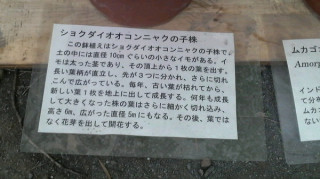 ショクダイオオコンニャクの子株
この鉢植えはショクダイオオコンニャクの子株で、
土の中には直径10cmぐらいの小さなイモがある。イ
モは太った茎であり、その頂上から1枚の葉を出す。
長い葉柄が直立し、先が3つに分かれ、さらに切れ
こんで広がっている。毎年、古い葉が枯れてから、
新しい葉1枚を地上に出して成長する。何年も成長
して大きくなった株の葉はさらに細かく切れ込み、
高さ6m、広がった直径5mにもなる。その後、葉では
なく花芽を出して開花する。
ムカゴ
Amorp
インド